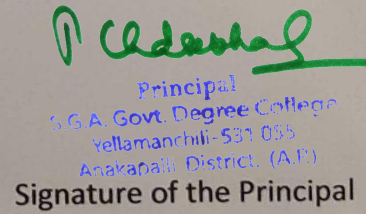 Principal
S.G.A. Govt. Degree College
Yellamanchili-531 055
Anakapalli District. (A.P.)
Signature of the Principal